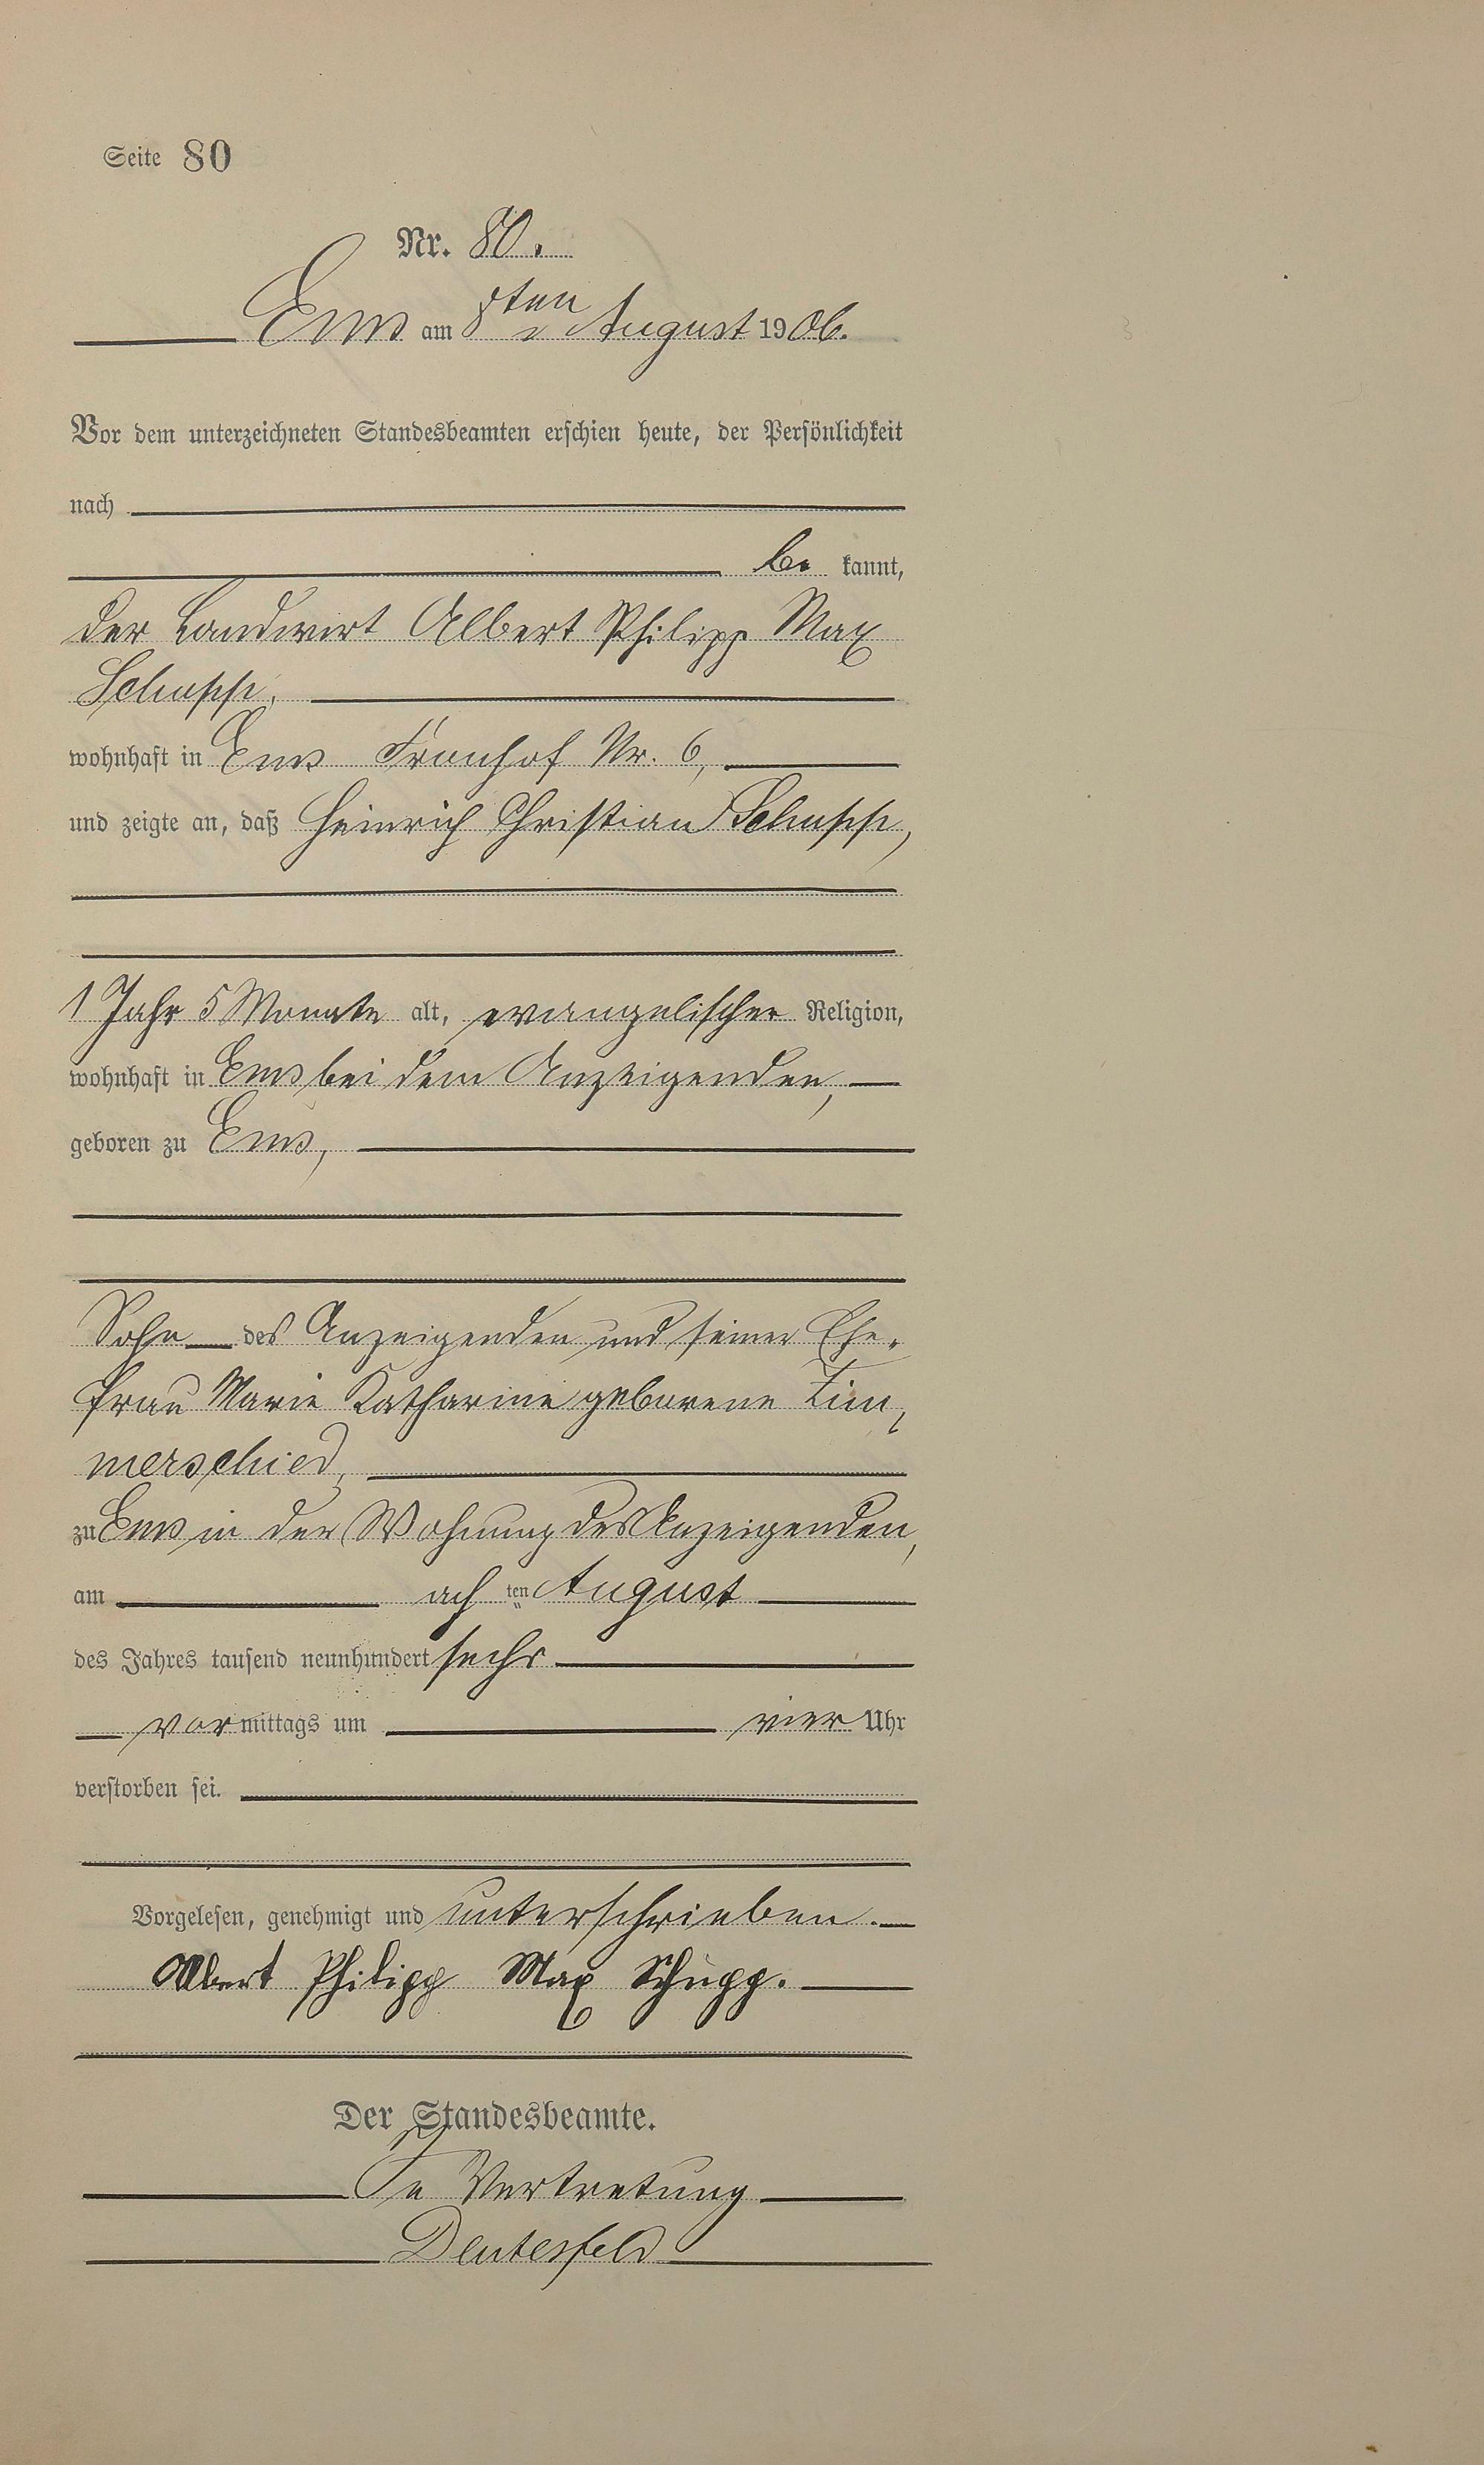 Seite 80
Nr. 80.
Ems am 8ten August 1906.
Vor dem unterzeichneten Standesbeamten erschien heute, der Persönlichkeit
nach
be kannt,
der Landwirt Albert Philipp Max
Schupp,
wohnhaft in Ems Fronhof Nr. 6,
und zeigte an, daß Heinrich Christian Schupp,
1 Jahr 5 Monate alt, evangelischer Religion,
wohnhaft in Ems bei dem Anzeigenden,
geboren zu Ems,
Sohn des Anzeigenden und seiner Ehe-
frau Marie Katharine geborene Zim-
merschied,
zu Ems in der Wohnung des Anzeigenden,
am ach ten August
des Jahres tausend neunhundert sechs
vor mittags um vier Uhr
verstorben sei.
Vorgelesen, genehmigt und unterschrieben.
Albert Philipp Max Schupp.
Der Standesbeamte.
In Vertretung
Deutesfeld